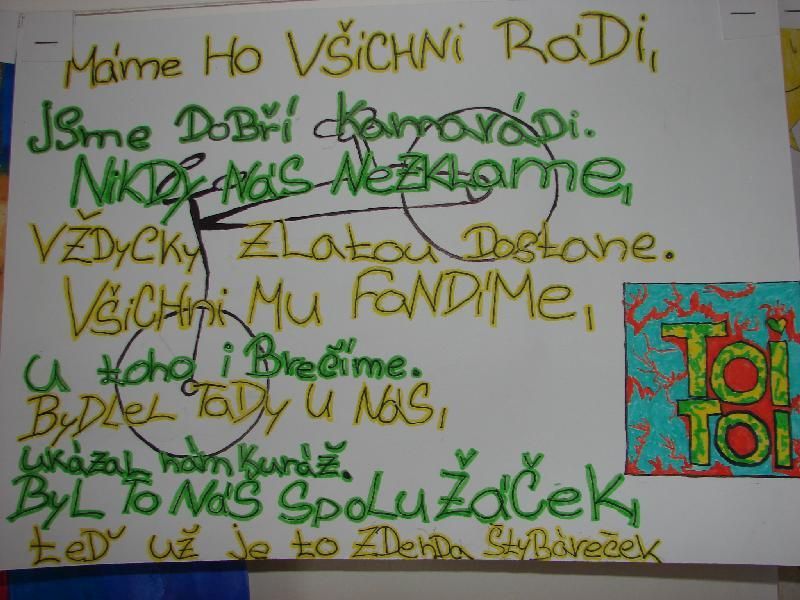 Máme Ho VŠiCHNi RáDi,
JSme DoBří Kamarádi.
NiKDy NáS NeZKLame,
VŽDyCKy ZLatou Dostane.
VŠiCHni Mu FaNDíMe,
u toho i Brečíme.
ByDLeL TaDy u NáS,
ukázal nám Kuráž.
ByL To NáŠ SpoLuŽáČeK,
teď už je to ZDenDa ŠtyBáreček
Toi
Toi